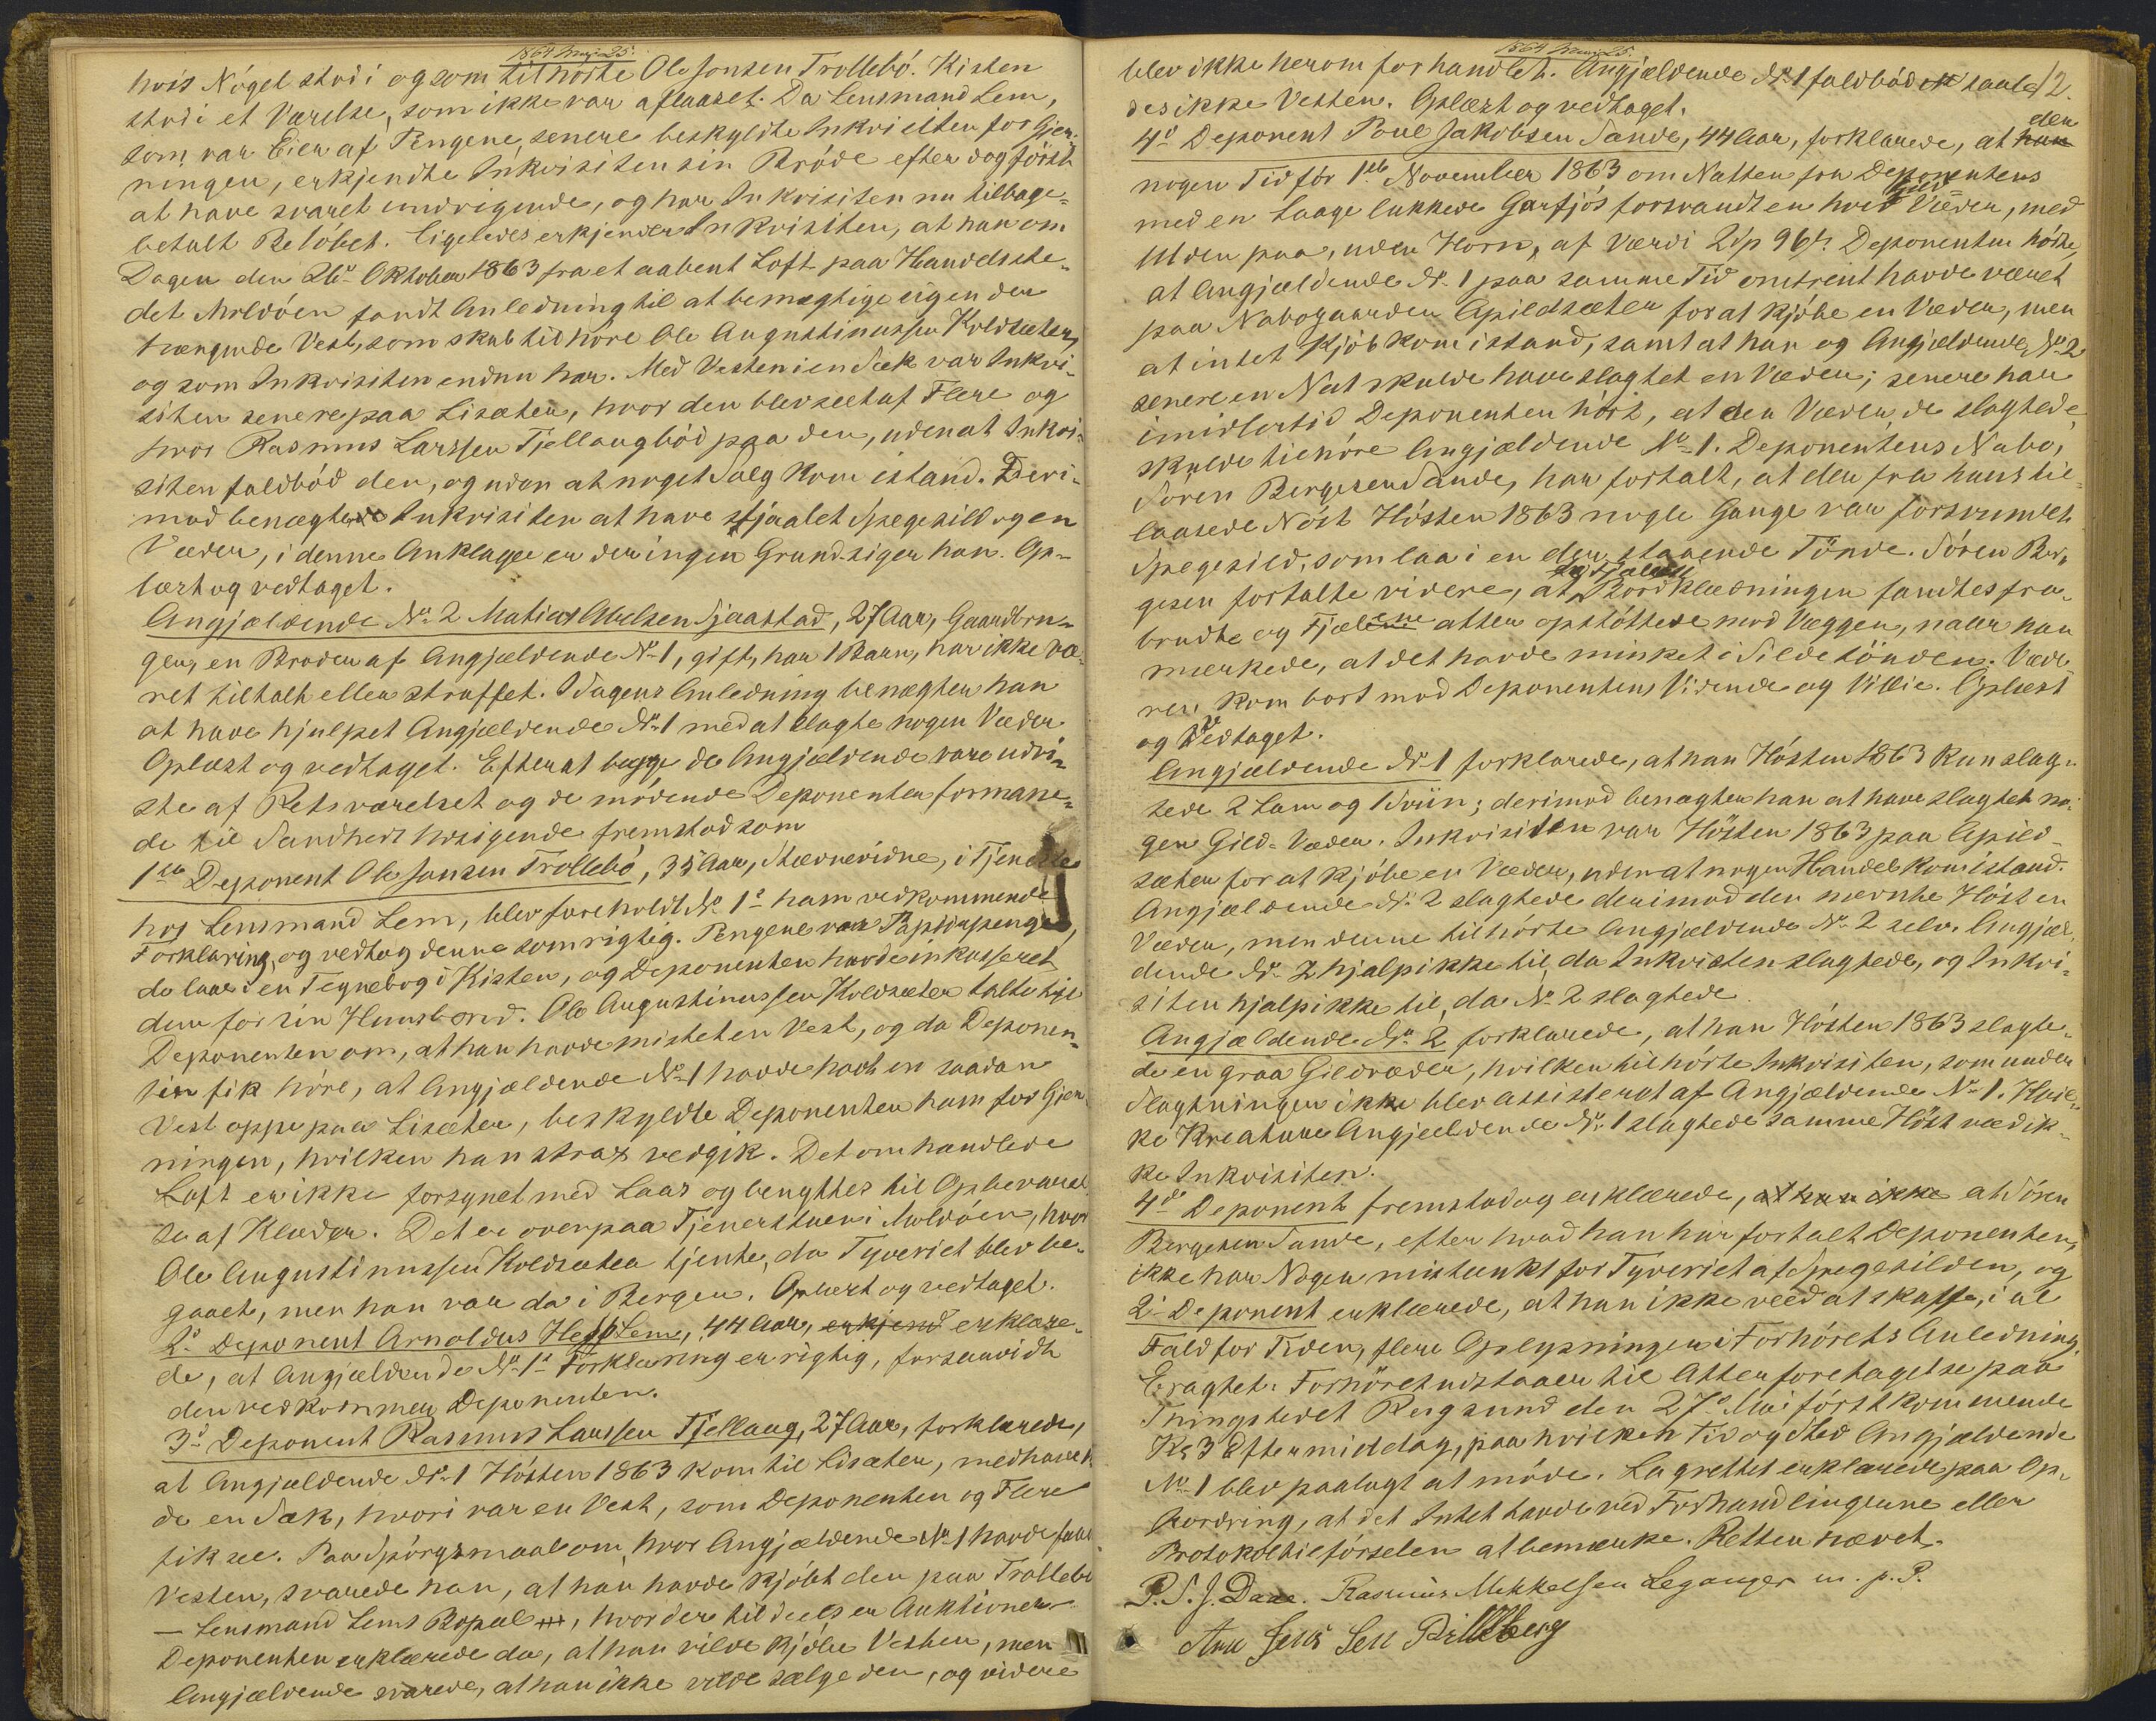 1864 Maj 25.
hvis Nøgel stod i og som tilhørte Ole Jonsen Trollebø. Kisten
stod i et Værelse, som ikke var aflaaset. Da Lensmand Lem,
som var Eier af Pengene, senere beskyldte Inkvisiten for Gjer-
ningen, erkjendte Inkvisiten sin Brøde efter dog først
at have svaret undvigende, og har Inkvisiten nu tilbage-
betalt Beløbet. Ligeledes erkjender Inkvisiten, at han om
Dagen den 26de Oktober 1863 fra et aabent Loft paa Handelsste-
det Moldøen fandt Anledning til at bemægtige sig en der
hængende Vest, som skal tilhøre Ole Augustinussen Koldsæter,
og som Inkvisiten endnu har. Med Vesten i en Sæk var Inkvi-
siten senere paa Lisæter, hvor den blev seet af Flere og
hvor Rasmus Larssen Tjellaug bød paa den, uden at Inkvi-
siten falbød den, og uden at noget Salg kom istand. Deri-
mod benægtede Inkvisiten at have stjaalet Spegesild og en
Væder, i denne Anklage er der ingen Grund siger han. Op-
læst og vedtaget.
Angjældende No 2 Mathias Abelsen Sjaastad, 27 Aar, Gaardbru-
ger, en Broder af Angjældende No 1, gift, har 1 Barn, har ikke væ-
ret tiltalt eller straffet. I Dagens Anledning benægter han
at have hjulpet Angjældende No 1 med at slagte nogen Væder.
Oplæst og vedtaget. Efterat begge de Angjældende vare udvi-
ste af Retsværelset og de mødende Deponenter formane-
de til Sandheds Udsigende fremstod som
1ste Deponent Ole Jonsen Trollebø, 35 Aar, Stævnevidne, i Tjeneste
hos Lensmand Lem, blev foreholdt No 1s ham vedkommende
Forklaring, og vedtog denne som rigtig. Pengene var Papirspenge,
de laae i en Tegnebog i Kisten, og Deponenten havde inkasseret
dem for sin Huusbond. Ole Augustinussen Koldsæter talte til
Deponenten om, at han havde mistet en Vest, og da Deponen-
ten fik høre, at Angjældende No 1 havde havt en saadan
Vest oppe paa Lisæter, beskyldte Deponenten ham for Gjer-
ningen, hvilken han strax vedgik. Det omhandlede
Loft er ikke forsynet med Laas og benyttes til Opbevarel-
se af Klæder. Det er over paa Tjenerstuen i Moldøen, hvor
Ole Augustinussen Koldsæter tjente, da Tyveriet blev be-
gaaet, men han var da i Bergen. Oplæst og vedtaget.
2de Deponent Arnoldus Lem, 44 Aar, erkjend erklære-
de, at Angjældende No 1s Forklaring er rigtig, forsaavidt
den vedkommer Deponenten.
3de Deponent Rasmus Larssen Tjellaug, 27 Aar, forklarede,
at Angjældende No 1 Høsten 1863 kom til Lisæter, medhaven-
de en Sæk, hvori var en Vest, som Deponenten og Flere
fik see. Paa Spørgsmaal om, hvor Angjældende No 1 havde faaet
Vesten, svarede han, at han havde kjøbt den paa Trollebø
— Lensmand Lems Bopæl, hvor der tildeels er Auktioner —
Deponenten erklærede da, at han vilde kjøbe Vesten, men
Angjældende svarede, at han ikke vilde sælge den, og videre
1864 Maj 25.
12.
blev ikke herom forhandlet. Angjældende No 1 falbød saale-
des ikke Vesten. Oplæst og vedtaget.
4de Deponent Poul Jakobsen Sande, 44 Aar, forklarede, at han der
nogen Tid før 1ste November 1863 om Natten fra Deponentens
med en Laage lukkede Garfjøs forsvandt en hvid Gield Væder, med
Ulden paa, uden Horn, af Værdi 2 Sp 96 s. Deponenten hørte,
at Angjældende No 1 paa samme Tid omtrent havde været
paa Nabogaarden Apildsæter for at kjøbe en Væder, men
at intet Kjøb kom istand, samt at han og Angjældende No 2
senere en Nat skulde have slagtet en Væder; senere har
imidlertid Deponenten hørt, at den Væder, de slagtede,
skulde tilhøre Angjældende No 1. Deponentens Nabo,
Søren Bergesen Sande, har fortalt, at der fra hans til-
laasede Nøst Høsten 1863 nogle Gange var forsvundet
Spegesild, som laa i en der staaende Tønde. Søren Ber-
gesen fortalte videre, at Bordklædningen fandtes fra-
brudte og Fjælene atter opstøttede mod Væggen, naar han
mærkede, at det havde minket i Sildetønden. Væde-
ren kom bort mod Deponentens Vidende og Villie. Oplæst
og Vedtaget.
Angjældende No 1 forklarede, at han Høsten 1863 kun slag-
tede 2 Lam og 1 Sviin; derimod benægter han at have slagtet no-
gen Gield-Væder. Inkvisiten var Høsten 1863 paa Apild-
sæter for at kjøbe en Væder, uden at nogen Handel kom istand.
Angjældende No 2 slagtede derimod den nævnte Høst en
Væder, men denne tilhørte Angjældende No 2 selv. Angjæl-
dende No 2 hjalp ikke til, da Inkvisiten slagtede, og Inkvi-
siten hjalp ikke til, da No 2 slagtede.
Angjældende No 2 forklarede, at han Høsten 1863 slagte-
de en graa Gieldvæder, hvilken tilhørte Inkvisiten, som under
Slagtningen ikke blev assisteret af Angjældende No 1. Hvil-
ke Kreature Angjældende No 1 slagtede samme Høst ved ik-
ke Inkvisiten.
4de Deponent fremstod og erklærede, at han ikke at Søren
Bergesen Sande, efter hvad han har fortalt Deponenten,
ikke har Nogen mistænkt for Tyveriet af Spegesilden, og
2de Deponent erklærede, at han ikke veed at skaffe, i al
Fald for Tiden, flere Oplysninger i Forhørets Anledning.
Eragtet: Forhøret udstaaer til Atter foretagelse paa
Thingstedet Rugsund den 27de Mai førstkommende
Kl 3 Eftermiddag, paa hvilken Tid og Sted Angjældende
No 1 blev paalagt at møde. Lagrettet erklærede paa Op-
fordring, at det Intet havde ved Forhandlingerne eller
Protokoltilførselen at bemærke. Retten hævet.
P. S. J. Daae. Rasmus Mikkelsen Leganger m. p. P.